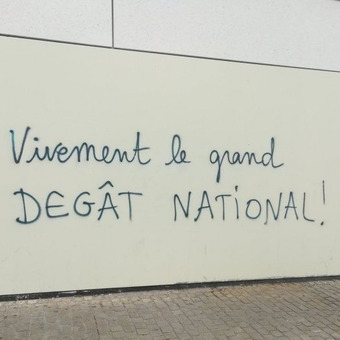 Vivement le grand
DEGÂT NATIONAL!